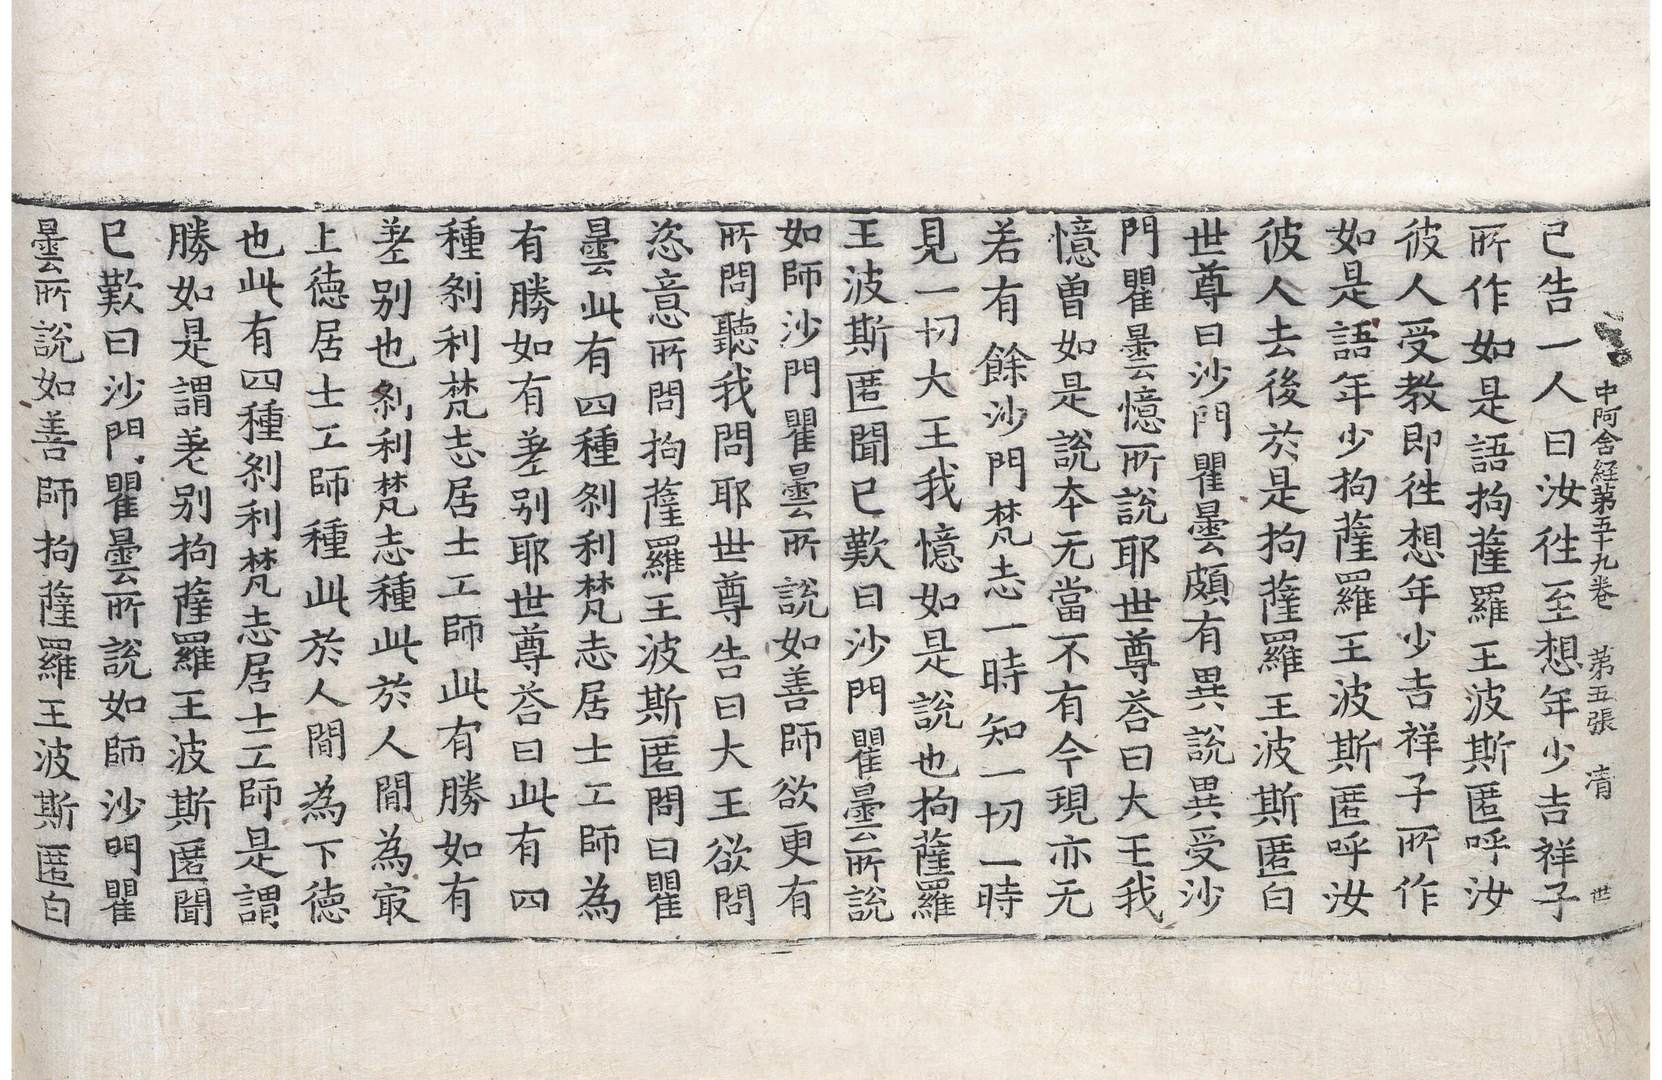 中阿含経第五十九卷 第五張 清 世
已告一人曰汝徃至想年少吉祥子
所作如是語拘薩羅王波斯匿呼汝
彼人受教即徃想年少吉祥子所作
如是語年少拘薩羅王波斯匿呼汝
彼人去後於是拘薩羅王波斯匿白
世尊曰沙門瞿曇頗有異說異受沙
門瞿曇憶所說耶世尊荅曰大王我
憶曾如是說夲无當不有今現亦无
若有餘沙門梵志一時知一切一時
見一切大王我憶如是說也拘薩羅
王波斯匿聞已歎曰沙門瞿曇所說
如師沙門瞿曇所說如善師欲更有
所問聽我問耶世尊告曰大王欲問
恣意所問拘薩羅王波斯匿問曰瞿
曇此有四種刹利梵志居士工師為
有勝如有差别耶世尊荅曰此有四
種刹利梵志居士工師此有勝如有
差别也刹利梵志種此於人間為㝡
上德居士工師種此於人間為下德
也此有四種刹利梵志居士工師是謂
勝如是謂差别拘薩羅王波斯匿聞
已歎曰沙門瞿曇所說如師沙門瞿
曇所說如善師拘薩羅王波斯匿白